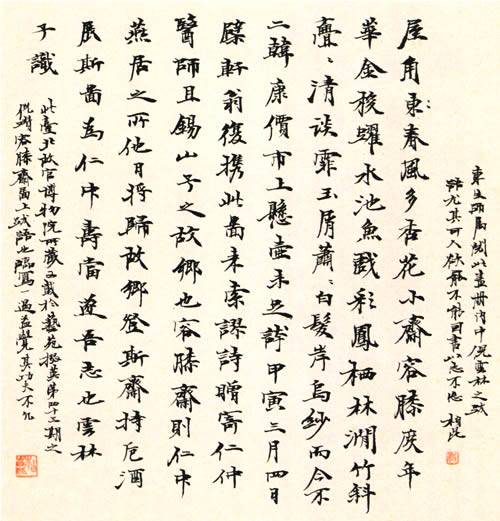 東生所屬閱此畫冊清中倪雲林之跋
尤其可人欲罷不能因書以志不忘
屋角東春風多杏花小齋容膝度年
華金梭躍水池魚戲彩鳳栖林澗竹斜
亹〻清談霏玉屑蕭〻白髮岸烏紗而今不
二韓康價市上懸壺未足誇甲寅三月四日
檗軒翁復携此啚来索謬詩贈寄仁仲
醫師且錫山予之故鄉也容膝齋則仁中
燕居之所他日將歸故鄉登斯齋持卮酒
展斯啚為仁中壽當遂吾志也雲林
子識
此臺北故宮博物院所藏又載於藝苑掇英第四十三期之
倪瓚容膝齋啚上跋也臨寫一過益覺其功夫不凡